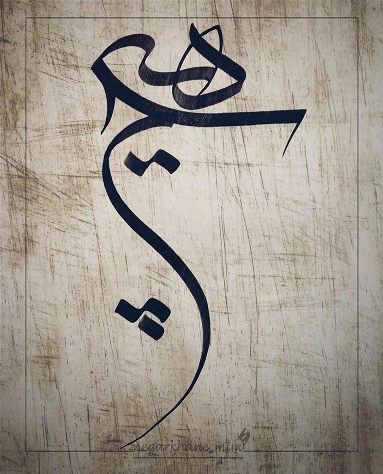 هیچ
negarkhane_mim